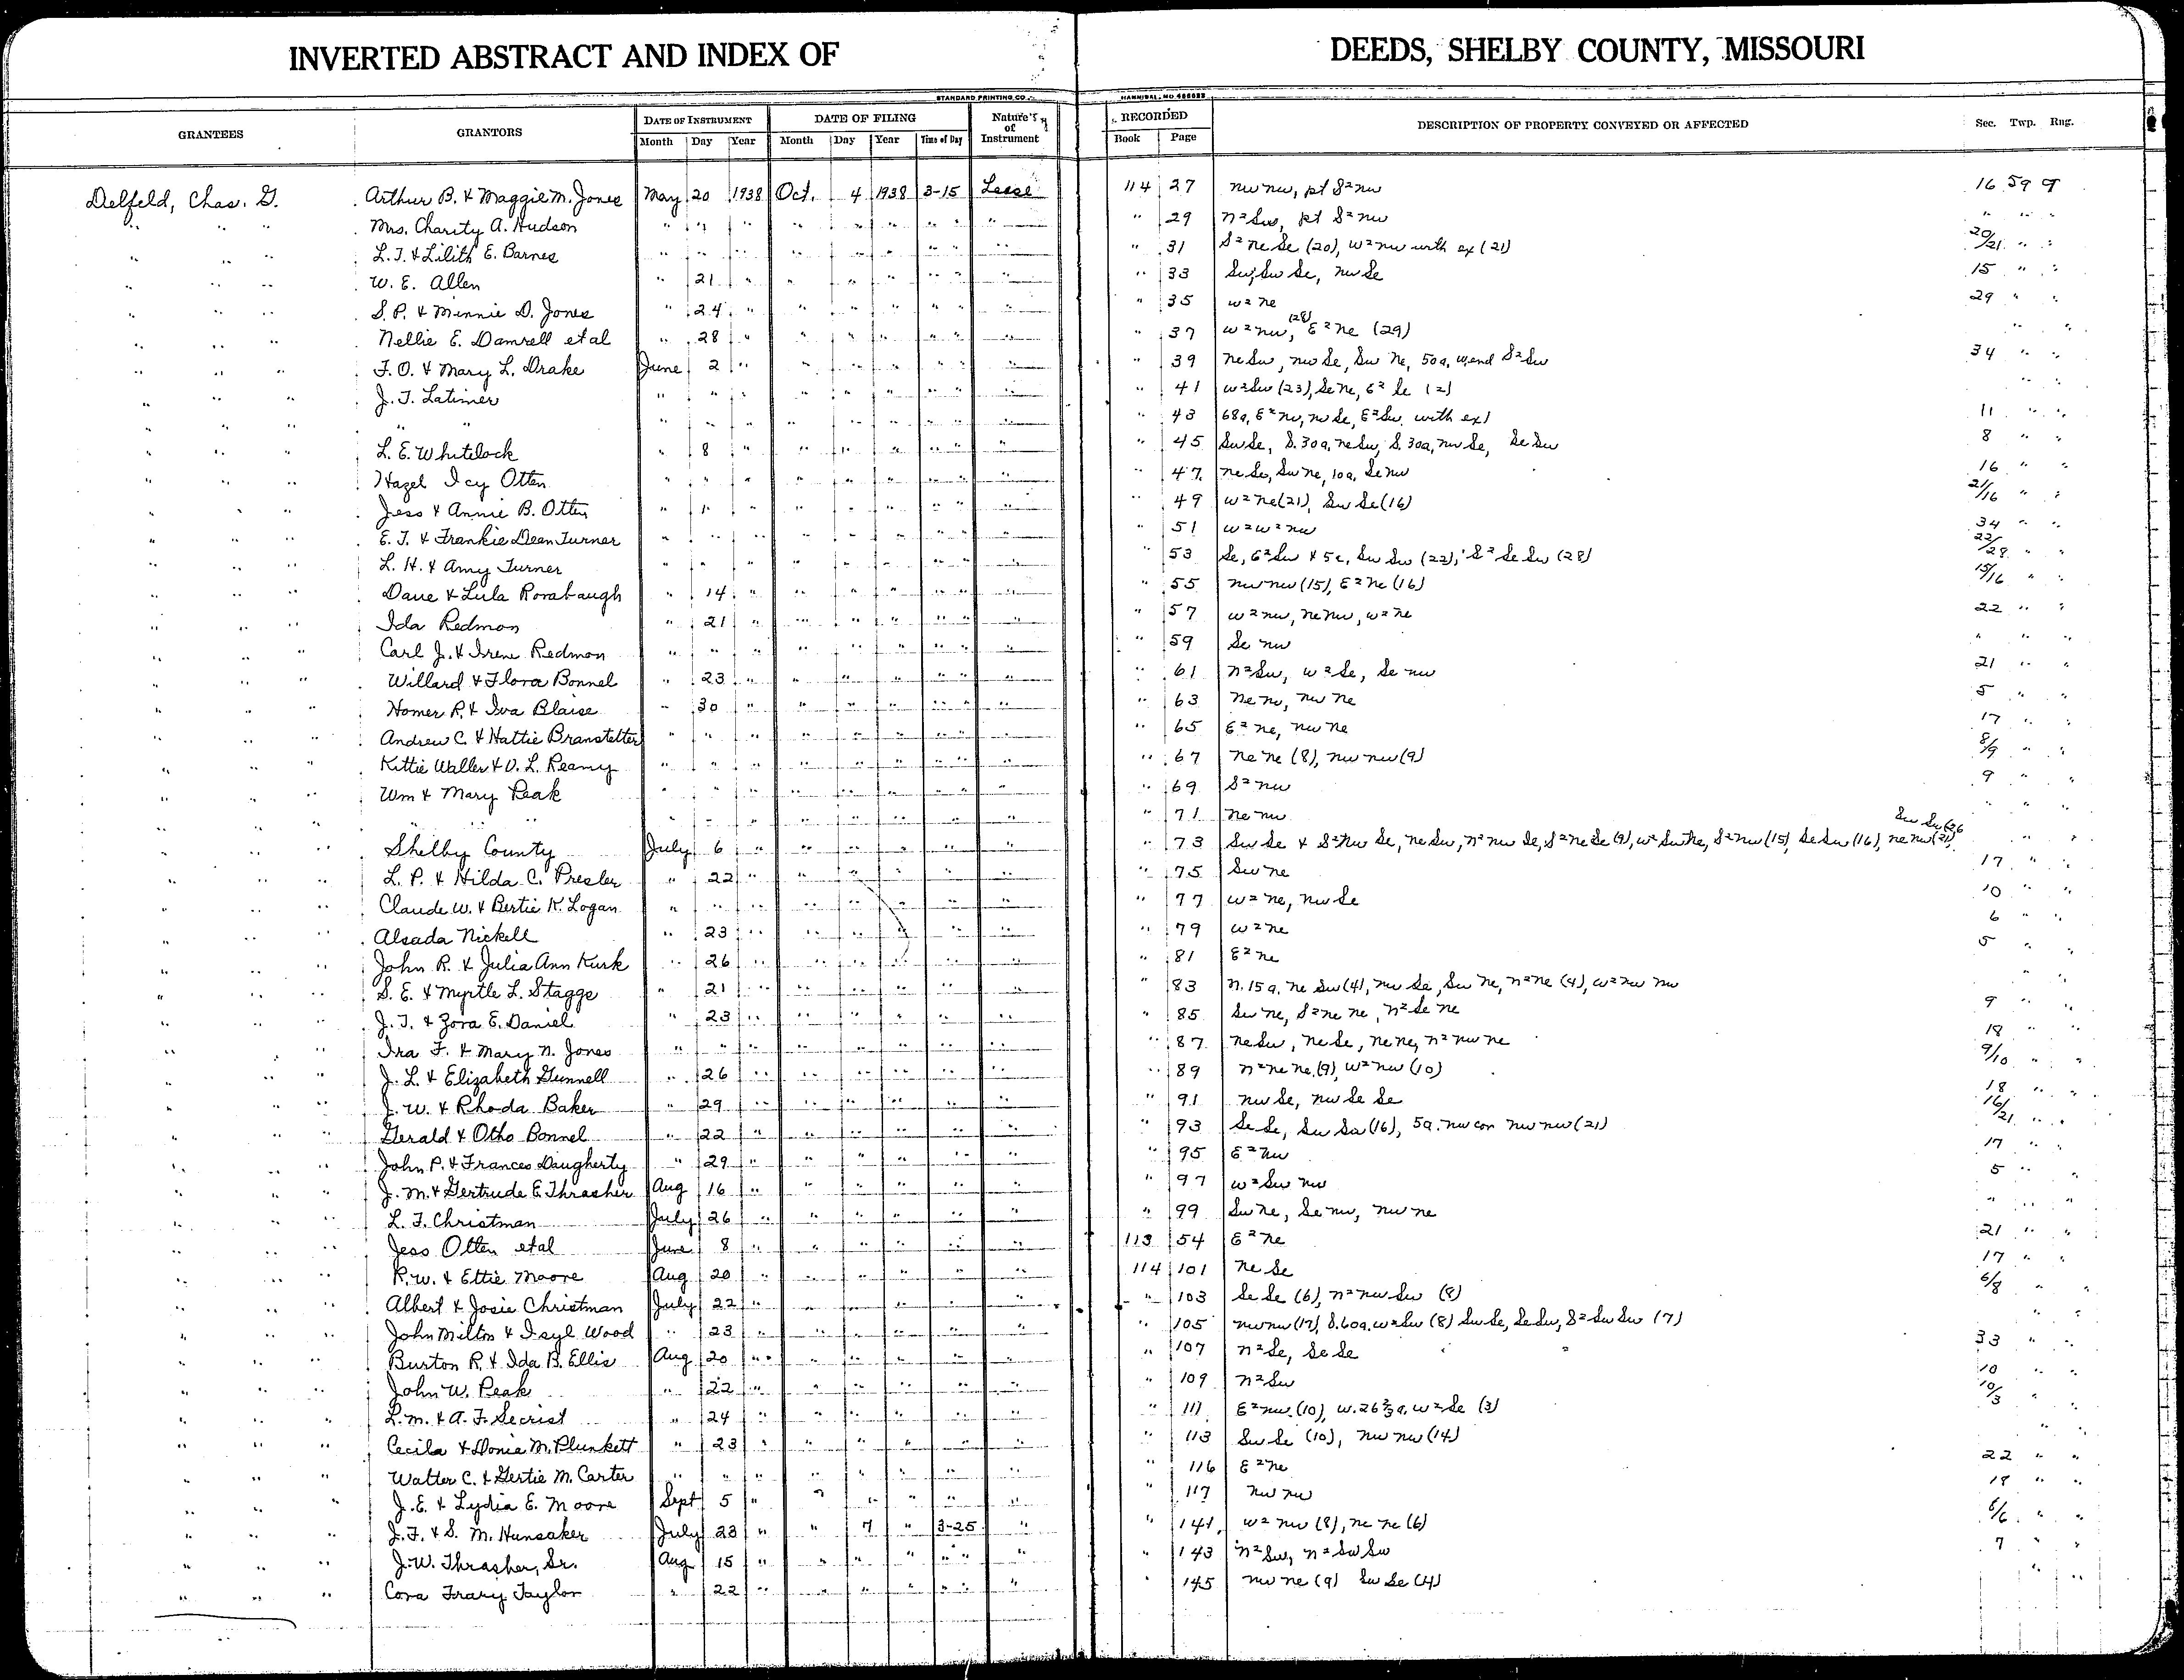 INVERTED ABSTRACT AND INDEX OF DEEDS, SHELBY COUNTY, MISSOURI
STANDARD PRINTING CO. HANNIBAL, MO.
GRANTEES GRANTORS DATE OF INSTRUMENT DATE OF FILING Nature's of Instrument RECORDED DESCRIPTION OF PROPERTY CONVEYED OR AFFECTED Sec. Twp. Rng.
Month Day Year Month Day Year Time of Day Book Page
Delfeld, Chas. G. Arthur B. & Maggie M. Jones May 20 1938 Oct. 4 1938 3-15 Lease 114 27 nw nw, pt S² nw 16 59 9
" " " Mrs. Charity A. Hudson " " " " " " " " " 29 n² Sw, pt S² nw " " "
" " " L. T. & Lilith E. Barnes " " " " " " " " " 31 S² ne Se (20), w² nw with ex (21) 20/21 " "
" " " W. E. Allen " 21 " " " " " " " 33 Sw, Sw Se, nw Se 15 " "
" " " S. P. & Minnie D. Jones " 24 " " " " " " " 35 w² ne 29 " "
" " " Nellie E. Damrell et al " 28 " " " " " " " 37 w² nw, (28) E² ne (29) " " "
" " " F. O. & Mary L. Drake June 2 " " " " " " " 39 ne Sw, nw Se, Sw ne, 50a. w. end S² Sw 34 " "
" " " J. T. Latimer " " " " " " " " " 41 w² Sw (23), Se ne, E² Se (2) " " "
" " " " " " " " " " " " " " 43 68a, E² nw, nw Se, E² Sw. with ex) 11 " "
" " " L. E. Whitelock " 8 " " " " " " " 45 Sw Se, S. 30a, ne Sw, S. 30a, nw Se, Se Sw 8 " "
" " " Hazel Icy Otten " " " " " " " " " 47 ne Se, Sw ne, 10a. Se nw 16 " "
" " " Jess & Annie B. Otten " " " " " " " " " 49 w² ne (21), Sw Se (16) 21/16 " "
" " " E. T. & Frankie Dean Turner " " " " " " " " " 51 w² w² nw 34 " "
" " " L. H. & Amy Turner " " " " " " " " " 53 Se, E² Sw & 5a, Sw Sw (22), S² Se Sw (28) 22/28 " "
" " " Dave & Lula Rorabaugh " 14 " " " " " " " 55 nw nw (15), E² ne (16) 15/16 " "
" " " Ida Redmon " 21 " " " " " " " 57 w² nw, ne nw, w² ne 22 " "
" " " Carl J. & Irene Redmon " " " " " " " " " 59 Se nw " " "
" " " Willard & Flora Bonnel " 23 " " " " " " " 61 n² Sw, w² Se, Se nw 21 " "
" " " Homer R. & Iva Blaise " 30 " " " " " " " 63 ne nw, nw ne 5 " "
" " " Andrew C. & Hattie Branstetter " " " " " " " " " 65 E² ne, nw ne 17 " "
" " " Kittie Waller & O. L. Reamy " " " " " " " " " 67 ne ne (8), nw nw (9) 8/9 " "
" " " Wm & Mary Peak " " " " " " " " " 69 S² nw 9 " "
" " " " " " " " " " " " " " 71 ne nw " " "
" " " Shelby County July 6 " " " " " " " 73 Sw Se & S² nw Se, ne Sw, n² nw Se, S² ne Se (9), w² Sw ne, S² nw (15), Se Sw (16), ne nw (21), Sw Sw (26 " " "
" " " L. P. & Hilda C. Presler " 22 " " " " " " " 75 Sw ne 17 " "
" " " Claude W. & Bertie K. Logan " " " " " " " " " 77 w² ne, nw Se 10 " "
" " " Alsada Nickell " 23 " " " " " " " 79 w² ne 6 " "
" " " John R. & Julia Ann Kirk " 26 " " " " " " " 81 E² ne 5 " "
" " " S. E. & Myrtle L. Staggs " 21 " " " " " " " 83 n. 15 a. ne Sw (4), nw Se, Sw ne, n² ne (9), w² nw nw " " "
" " " J. T. & Zora E. Daniel " 23 " " " " " " " 85 Sw ne, S² ne ne, n² Se ne 9 " "
" " " Ira F. & Mary N. Jones " " " " " " " " " 87 ne Sw, ne Se, ne ne, n² nw ne 18 " "
" " " J. L. & Elizabeth Gunnell " 26 " " " " " " " 89 n² ne ne (9), w² nw (10) 9/10 " "
" " " J. W. & Rhoda Baker " 29 " " " " " " " 91 nw Se, nw Se Se 18 " "
" " " Gerald & Otho Bonnel " 22 " " " " " " " 93 Se Se, Sw Sw (16), 5a. nw cor nw nw (21) 16/21 " "
" " " John P. & Frances Daugherty " 29 " " " " " " " 95 E² nw 17 " "
" " " J. M. & Gertrude E. Thrasher Aug 16 " " " " " " " 97 w² Sw nw 5 " "
" " " L. F. Christman July 26 " " " " " " " 99 Sw ne, Se nw, nw ne " " "
" " " Jess Otten et al June 8 " " " " " " 113 54 E² ne 21 " "
" " " R. W. & Ettie Moore Aug 20 " " " " " " 114 101 ne Se 17 " "
" " " Albert & Josie Christman July 22 " " " " " " " 103 Se Se (6), n² nw Sw (8) 6/8 " "
" " " John Milton & Isyl Wood " 23 " " " " " " " 105 nw nw (17), S. 60a. w² Sw (8) Sw Se, Se Sw, S² Sw Sw (7) " " "
" " " Burton R. & Ida B. Ellis Aug 20 " " " " " " " 107 n² Se, Se Se 33 " "
" " " John W. Peak " 22 " " " " " " " 109 n² Sw 10 " "
" " " L. M. & A. F. Secrist " 24 " " " " " " " 111 E² nw (10), w. 26⅔ a. w² Se (3) 10/3 " "
" " " Cecila & Donia M. Plunkett " 23 " " " " " " " 113 Sw Se (10), nw nw (14) " " "
" " " Walter C. & Gertie M. Carter " " " " " " " " " 116 E² ne 22 " "
" " " J. E. & Lydia E. Moore Sept 5 " " " " " " " 117 nw nw 18 " "
" " " J. F. & S. M. Hunsaker July 23 " " 7 " 3-25 " " 141 w² nw (8), ne ne (6) 8/6 " "
" " " J. W. Thrasher, Sr. Aug 15 " " " " " " " 143 n² Sw, n² Sw Sw 7 " "
" " " Cora Frary Taylor " 22 " " " " " " " 145 nw ne (9) Sw Se (4) " " "